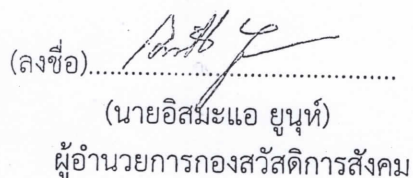 (ลงชื่อ)........................................
(นายอิสมะแอ ยูนุห์)
ผู้อำนวยการกองสวัสดิการสังคม